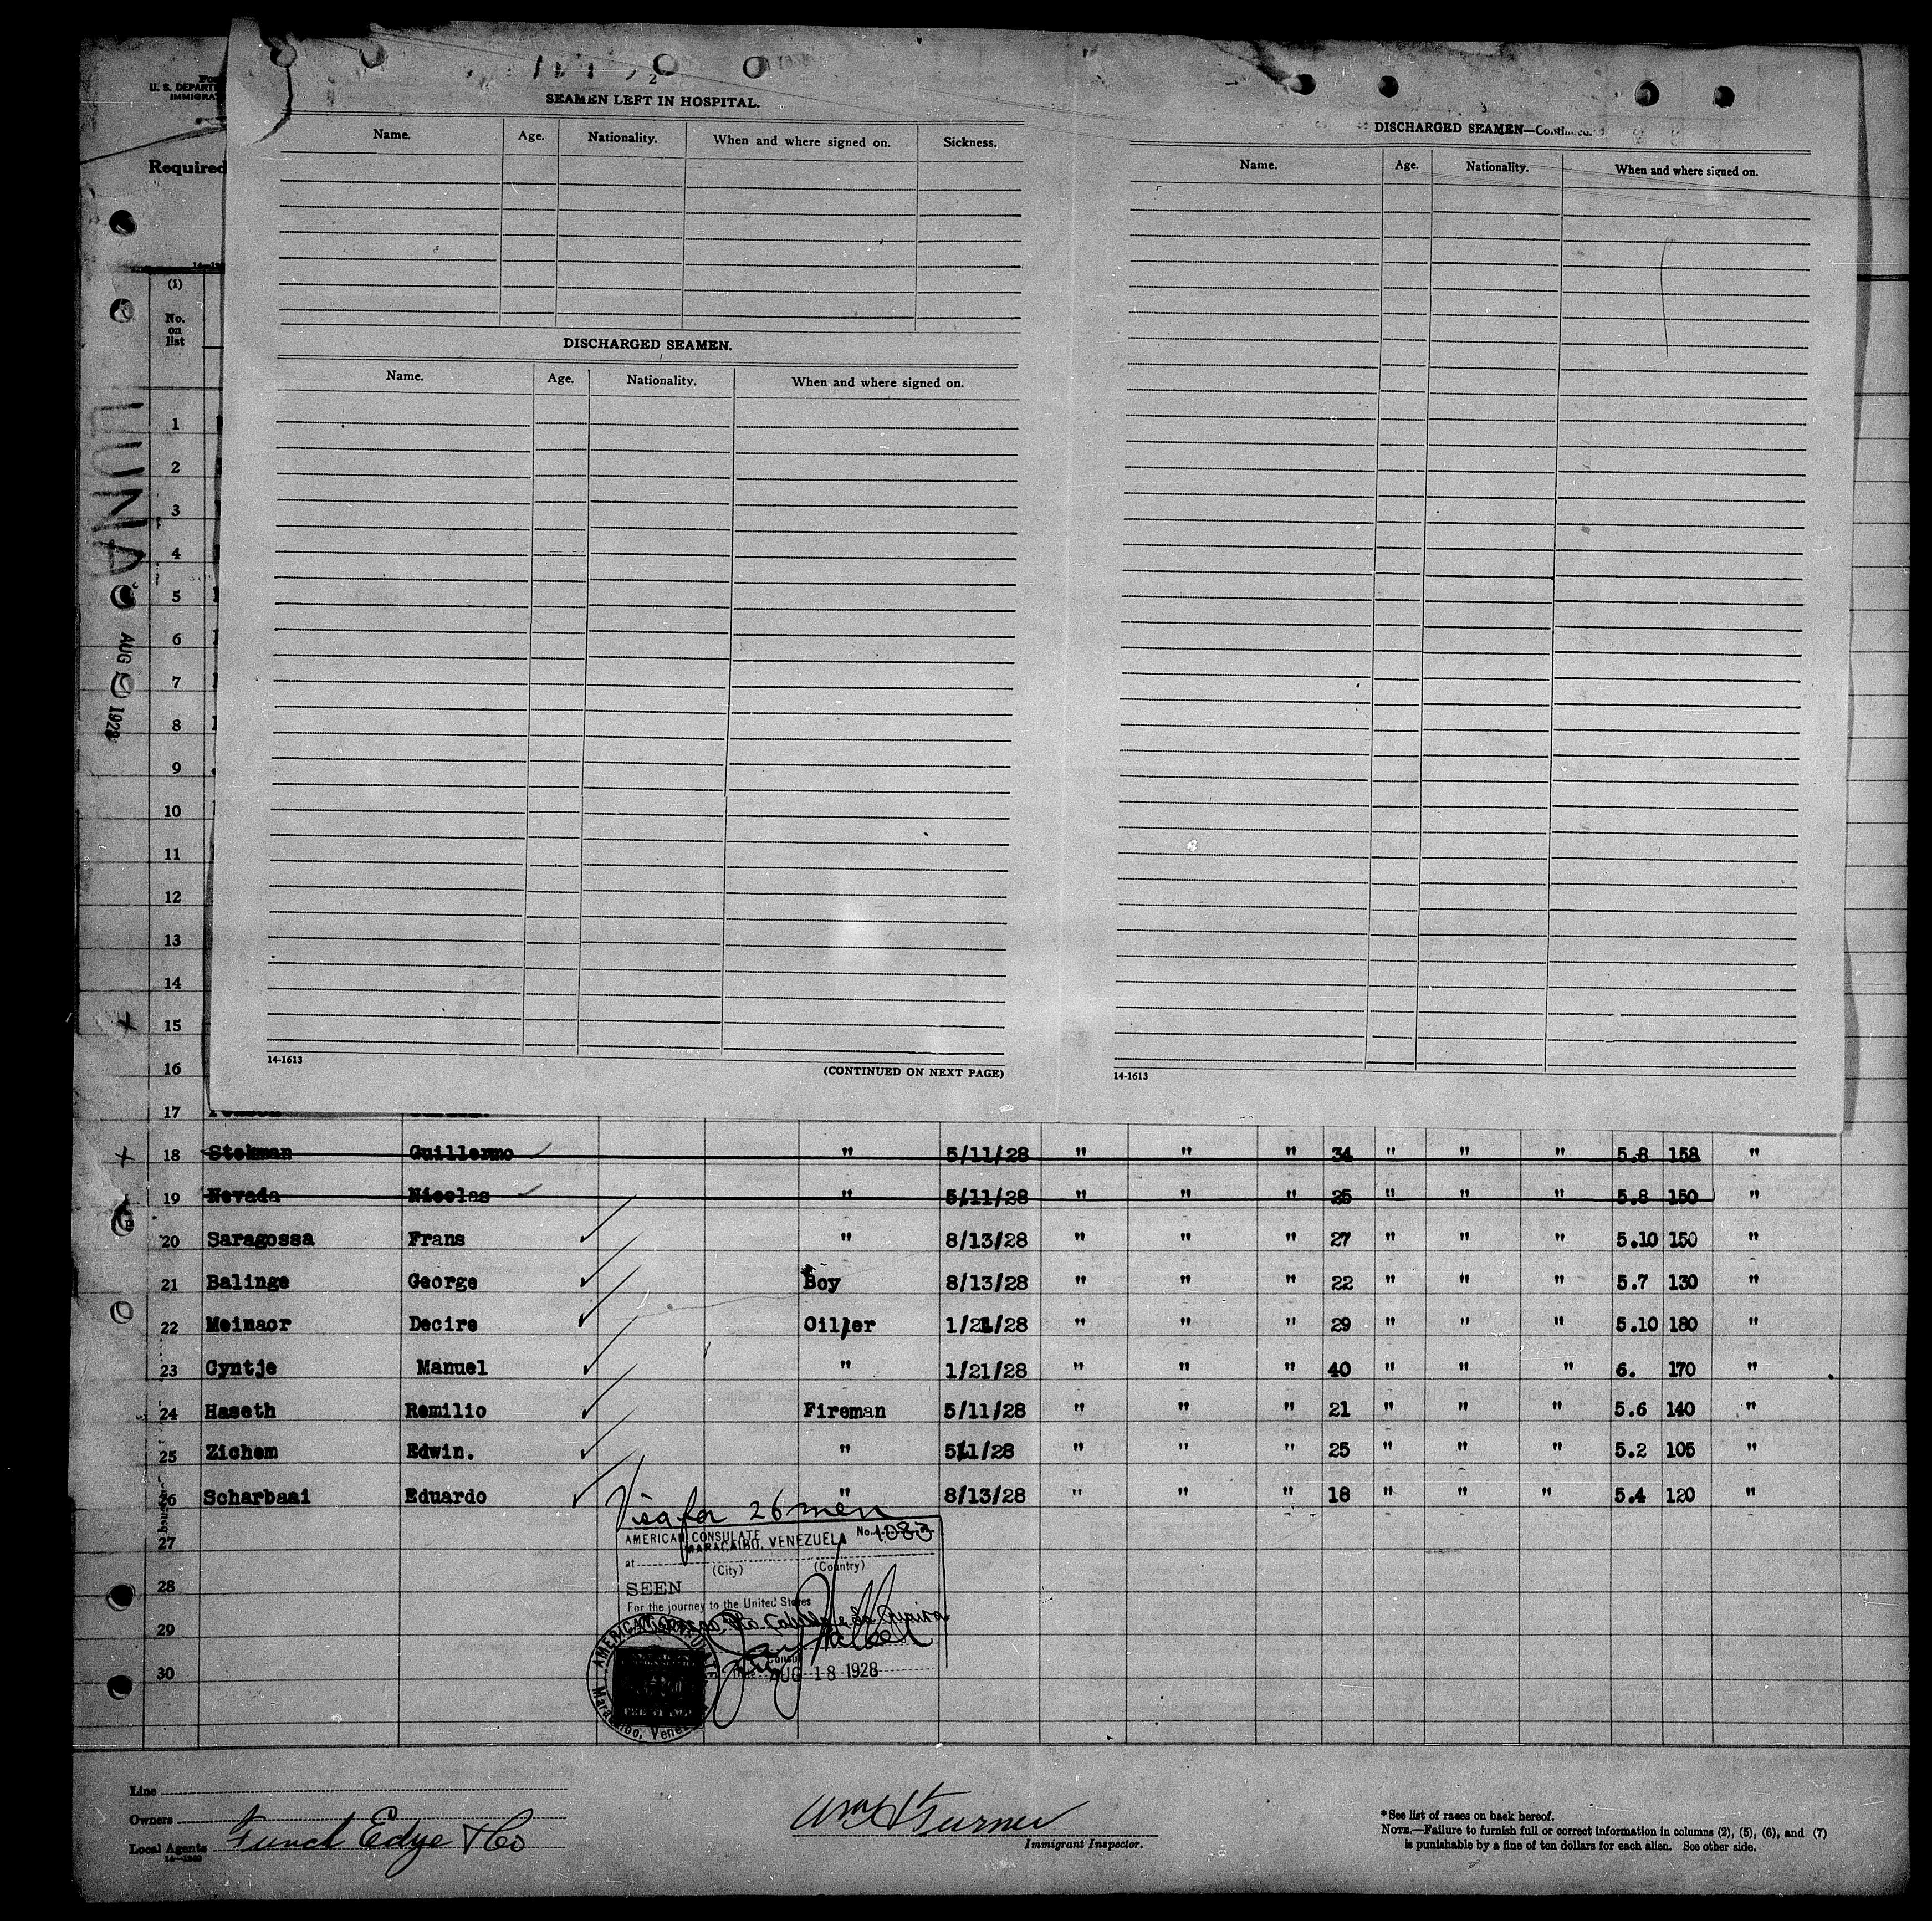 2
SEAMEN LEFT IN HOSPITAL.
Name. Age. Nationality. When and where signed on. Sickness.
DISCHARGED SEAMEN.
Name. Age. Nationality. When and where signed on.
14-1613
(CONTINUED ON NEXT PAGE)
DISCHARGED SEAMEN—Continued.
Name. Age. Nationality. When and where signed on.
14-1613
U. S. DEPART
IMMIGRA
Required
(1)
No. on list
LUNA
AUG 1928
1
2
3
4
5
6
7
8
9
10
11
12
13
14
15
16
17
18 Stekman Guillermo " 5/11/28 " " " 34 " " " 5.8 158 "
19 Nevada Nicolas " 5/11/28 " " " 25 " " " 5.8 150 "
20 Saragossa Frans " 8/13/28 " " " 27 " " " 5.10 150 "
21 Balinge George Boy 8/13/28 " " " 22 " " " 5.7 130 "
22 Meinaor Decire Oiler 1/21/28 " " " 29 " " " 5.10 180 "
23 Cyntje Manuel " 1/21/28 " " " 40 " " " 6. 170 "
24 Haseth Remilio Fireman 5/11/28 " " " 21 " " " 5.6 140 "
25 Zichem Edwin. " 5/11/28 " " " 25 " " " 5.2 105 "
26 Scharbaai Eduardo " 8/13/28 " " " 18 " " " 5.4 120 "
27
28
29
30
Visa for 26 men
AMERICAN CONSULATE No. 1083
at MARACAIBO, VENEZUELA
(City) (Country)
SEEN
For the journey to the United States
Consul
AUG 18 1928
AMERICAN CONSULATE
Maracaibo, Venezuela
Line
Owners
Local Agents Funch Edye & Co
Wm Turner
Immigrant Inspector.
*See list of races on back hereof.
NOTE.—Failure to furnish full or correct information in columns (2), (5), (6), and (7)
is punishable by a fine of ten dollars for each alien. See other side.